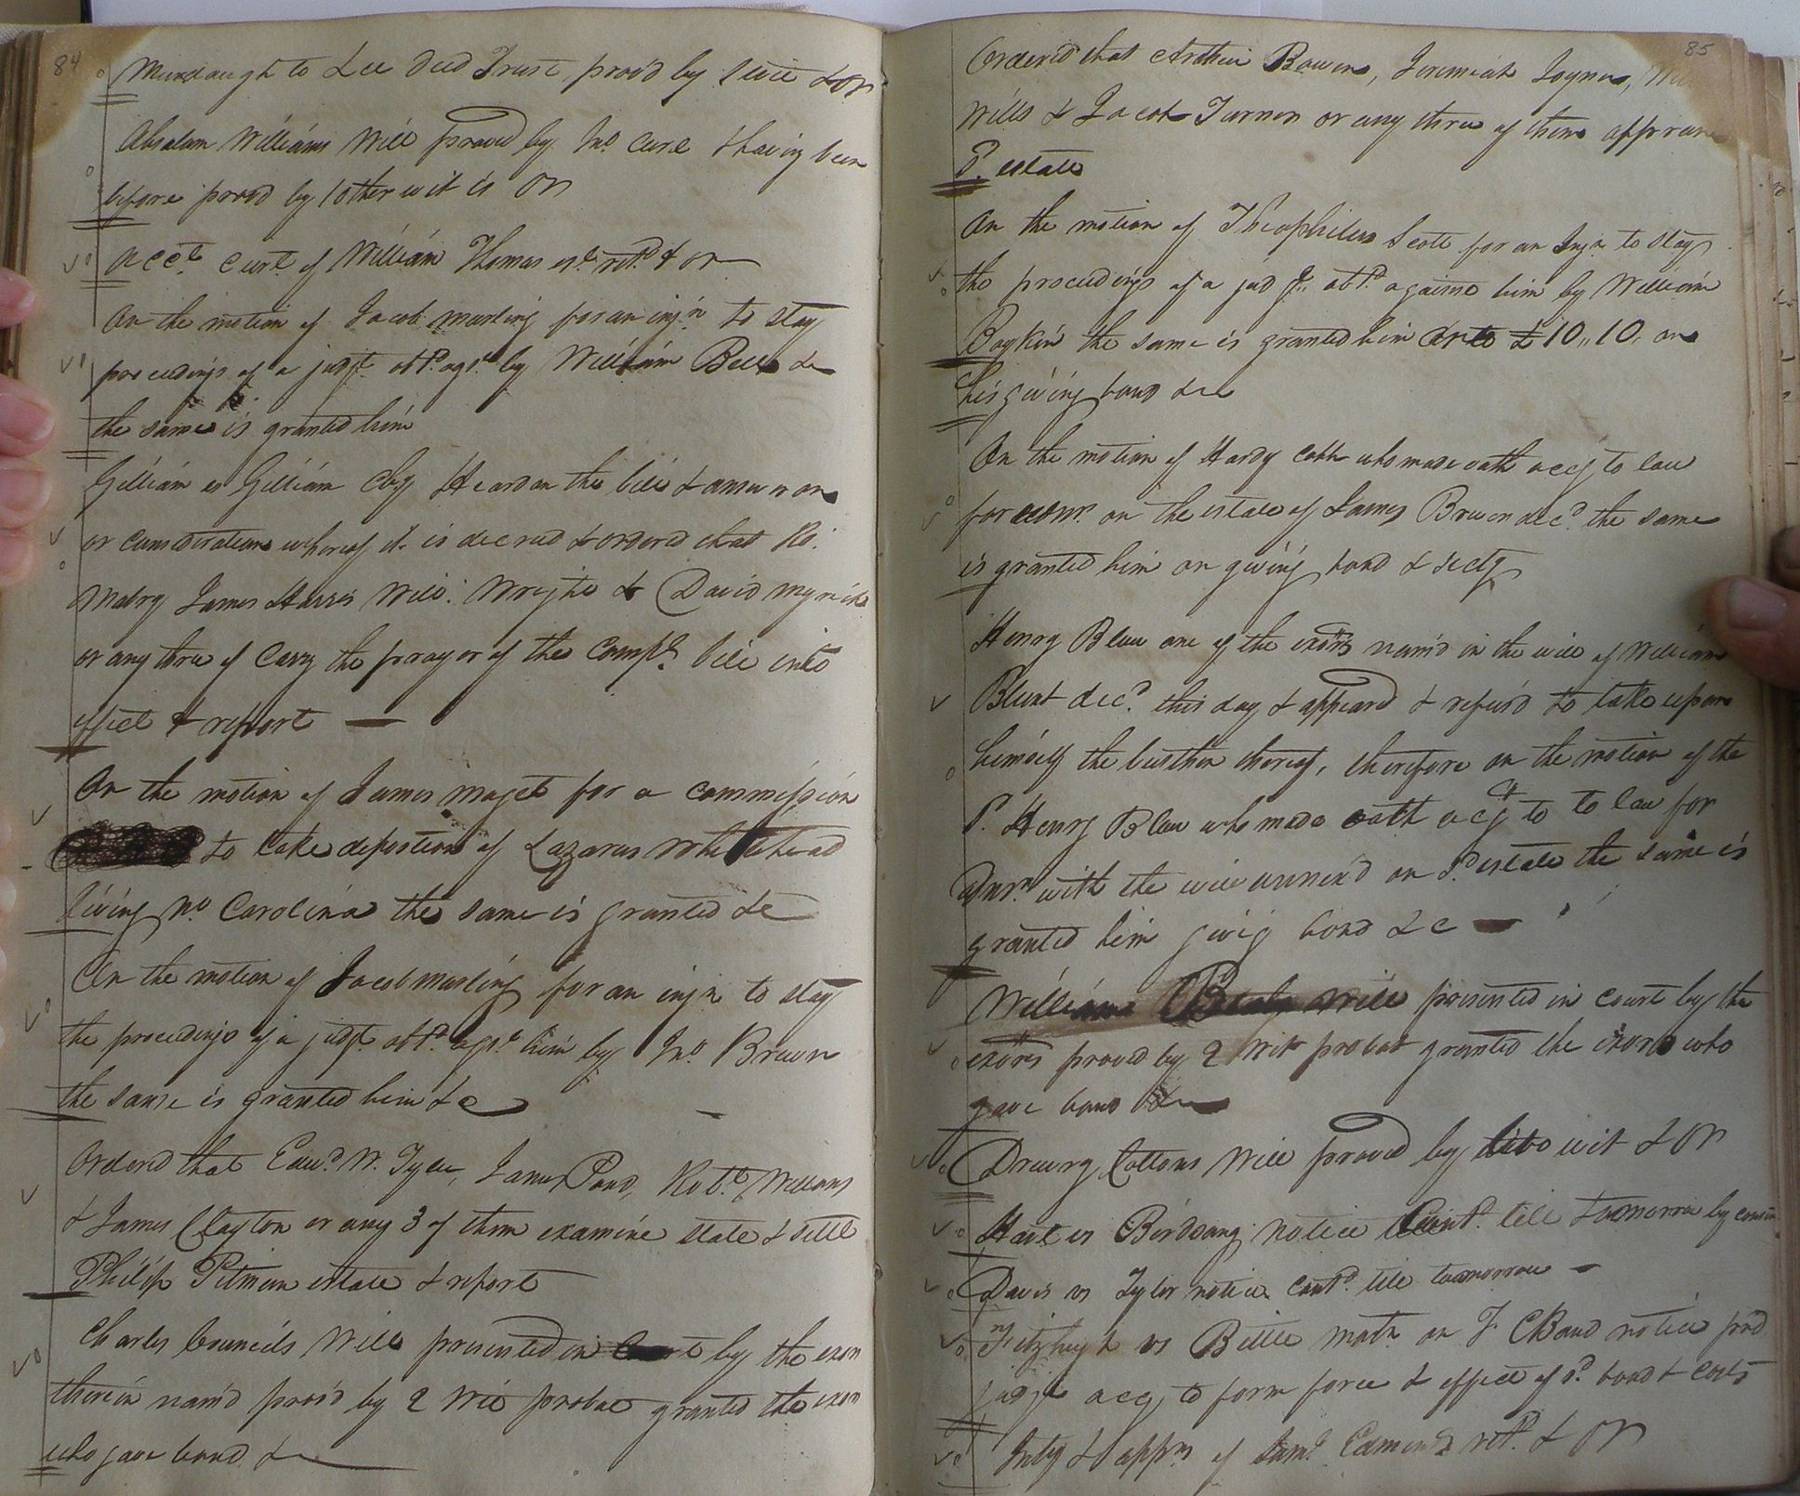 84
Murdaugh to Lee Deed Trust prov'd by 1 wit & OR
Absalom Williams Will proved by Jno Curl & having been
before prov'd by 1 other wit is OR
Acct. Curt. of William Thomas est. retd. & OR
On the motion of Jacob Marling for an injn to stay
proceedings of a judgt. obtd. agst. by William Bell &c
the same is granted him
Gilliam vs Gilliam Chy Heard on the bill & answer on
or consideration whereof it is decreed & ordered that Ro.
Malry James Harris Will: Wright & David Myrick
or any three of Carry the prayer of the Complt. bill into
effect & report
On the motion of James Maget for a commission
to take depostion of Lazarus Whitehead
living No Carolina the same is granted &c
On the motion of Jacob Marling for an injn to stay
the proceedings of a judgt. obtd. agst. him by Jno. Brown
the same is granted him &c
Ordered that Edwd. W. Tyler, James Pond, Robt. Williams
& James Clayton or any 3 of them examine state & settle
Philip Pitman estate & report
Charles Councils Will presented in Court by the exor
therein nam'd prov'd by 2 Wit probat granted the exor
who gave bond &c
85
Ordered that Arthur Bowers, Jeremiah Joyner,
Wills & Jacob Turner or any three of them appraise
sd. estate
On the motion of Theophilus Scott for an Injn to stay
the proceedings of a judgt. obtd. against him by William
Boykin the same is granted him as to £10,,10, on
his giving bond &c
On the motion of Hardy Cobb who made oath accg to law
for admr. on the estate of James Brown decd. the same
is granted him on giving bond & secty
Henry Blow one of the exors nam'd in the will of William
Blunt decd. this day & appeard & refus'd to take upon
himself the burthen thereof, therefore on the motion of the
sd. Henry Blow who made oath accg to to law for
Admr. with the will annex'd on sd. estate the same is
granted him givig bond &c
William Will presented in court by the
exors proved by 2 Wit probat granted the exors who
gave bond &c
Drewry Cottons Will proved by two wit & OR
Hart vs Birdsong notice Contd. till tomorrow by consn
Davis vs Tyler notice contd. till tomorrow
Fitzhugh vs Bittle motn on F C Bond notice prod
judgt accg to form force & effect of sd. bond & costs
Inty & appmt of Saml. Edmunds retd. & OR